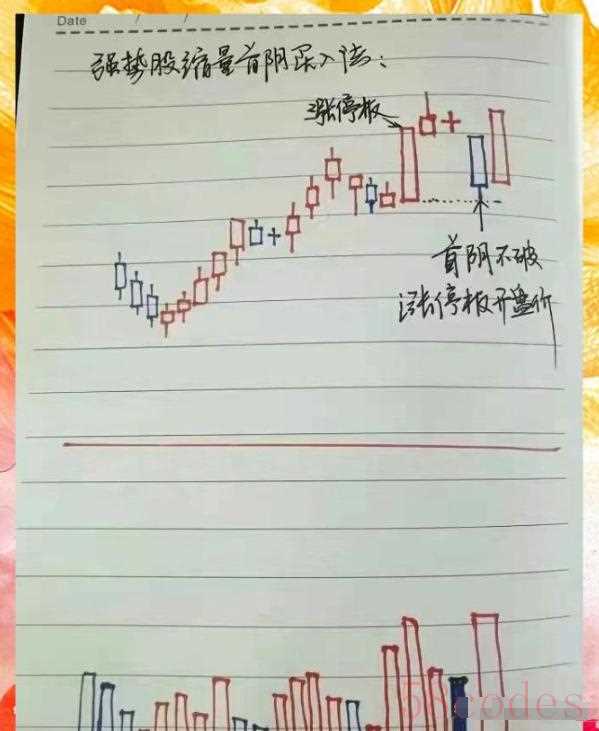 Date / /
强势股缩量首阴买入法:
涨停板
首阴不破
涨停板开盘价
58codes